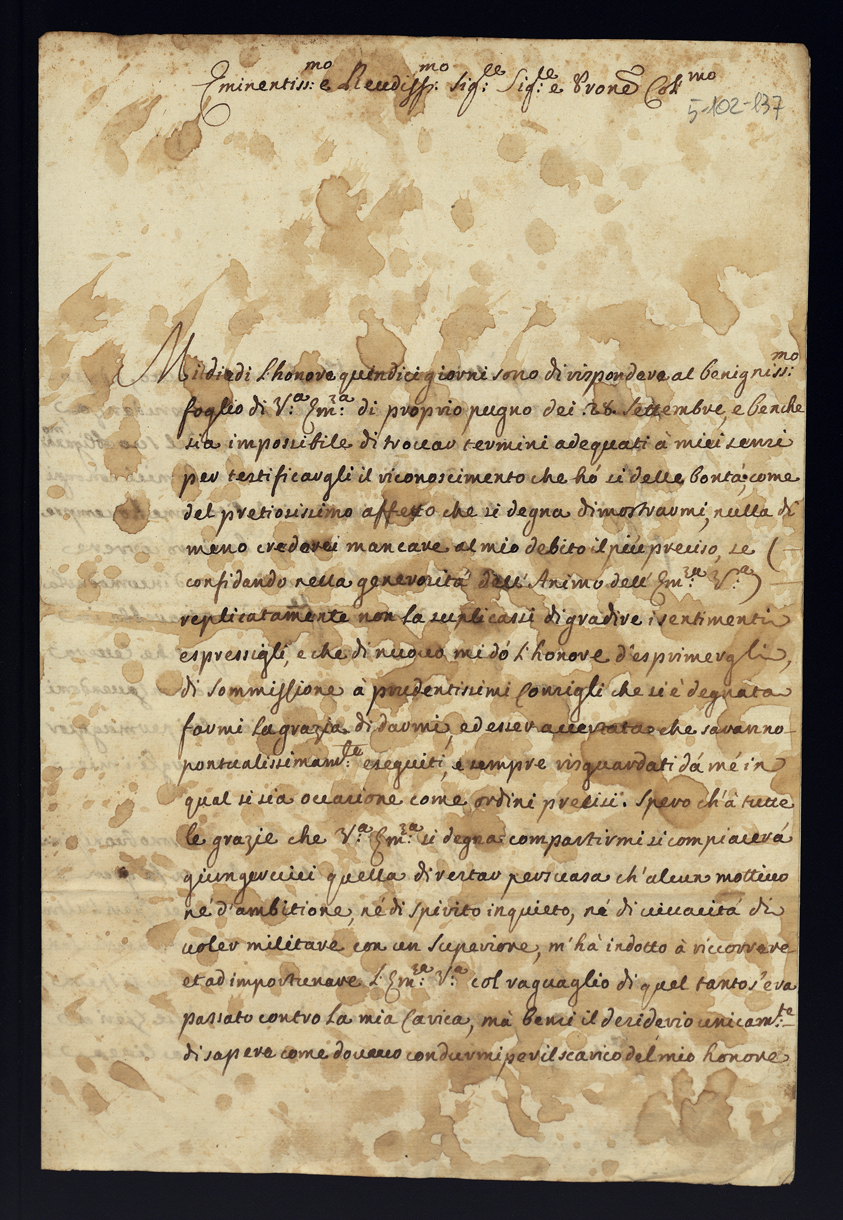 Eminentiss:mo e Reudiss:mo Sig:re Sig:re e Prone Col:mo
5-102-137
Mi diedi l'honore quindici giorni sono di rispondere al benigniss:mo
foglio di V:a Em:za di proprio pugno dei 28 Settembre, e benche
sia impossibile di trovar termini adequati à miei sensi
per testificargli il riconoscimento che hó si della bontá, come
del pretiosissimo affetto che si degna dimostrarmi, nulla di
meno crederei mancare al mio debito il più preciso, se
confidando nella generositá dell'Animo dell'Em:za V:a
replicatamente non la suplicassi di gradire i sentimenti
espressigli, e che di nuouo mi dó l'honore d'esprimergli,
di sommissione à prudentissimi Consigli che si è degnata
farmi la grazia di darmi, ed esser accertata che saranno
pontualissimam:te eseguiti, e sempre risguardati dá mé in
qual si sia occasione come ordini precisi. Spero ch'à tutte
le grazie che V:a Em:za si degna compartirmi si compiacerá
giungeruici quella di restar persuasa ch'alcun mottiuo
né d'ambitione, né di spirito inquieto, né di uiuacitá di
uoler militare con un Superiore, m'hà indotto à riccorrere
et ad importunare l'Em:za V:a col raguaglio di quel tanto s'era
passato contro la mia Carica, mà bensi il desiderio unicam:te
di sapere come doueuo condurmi per il scarico del mio honore